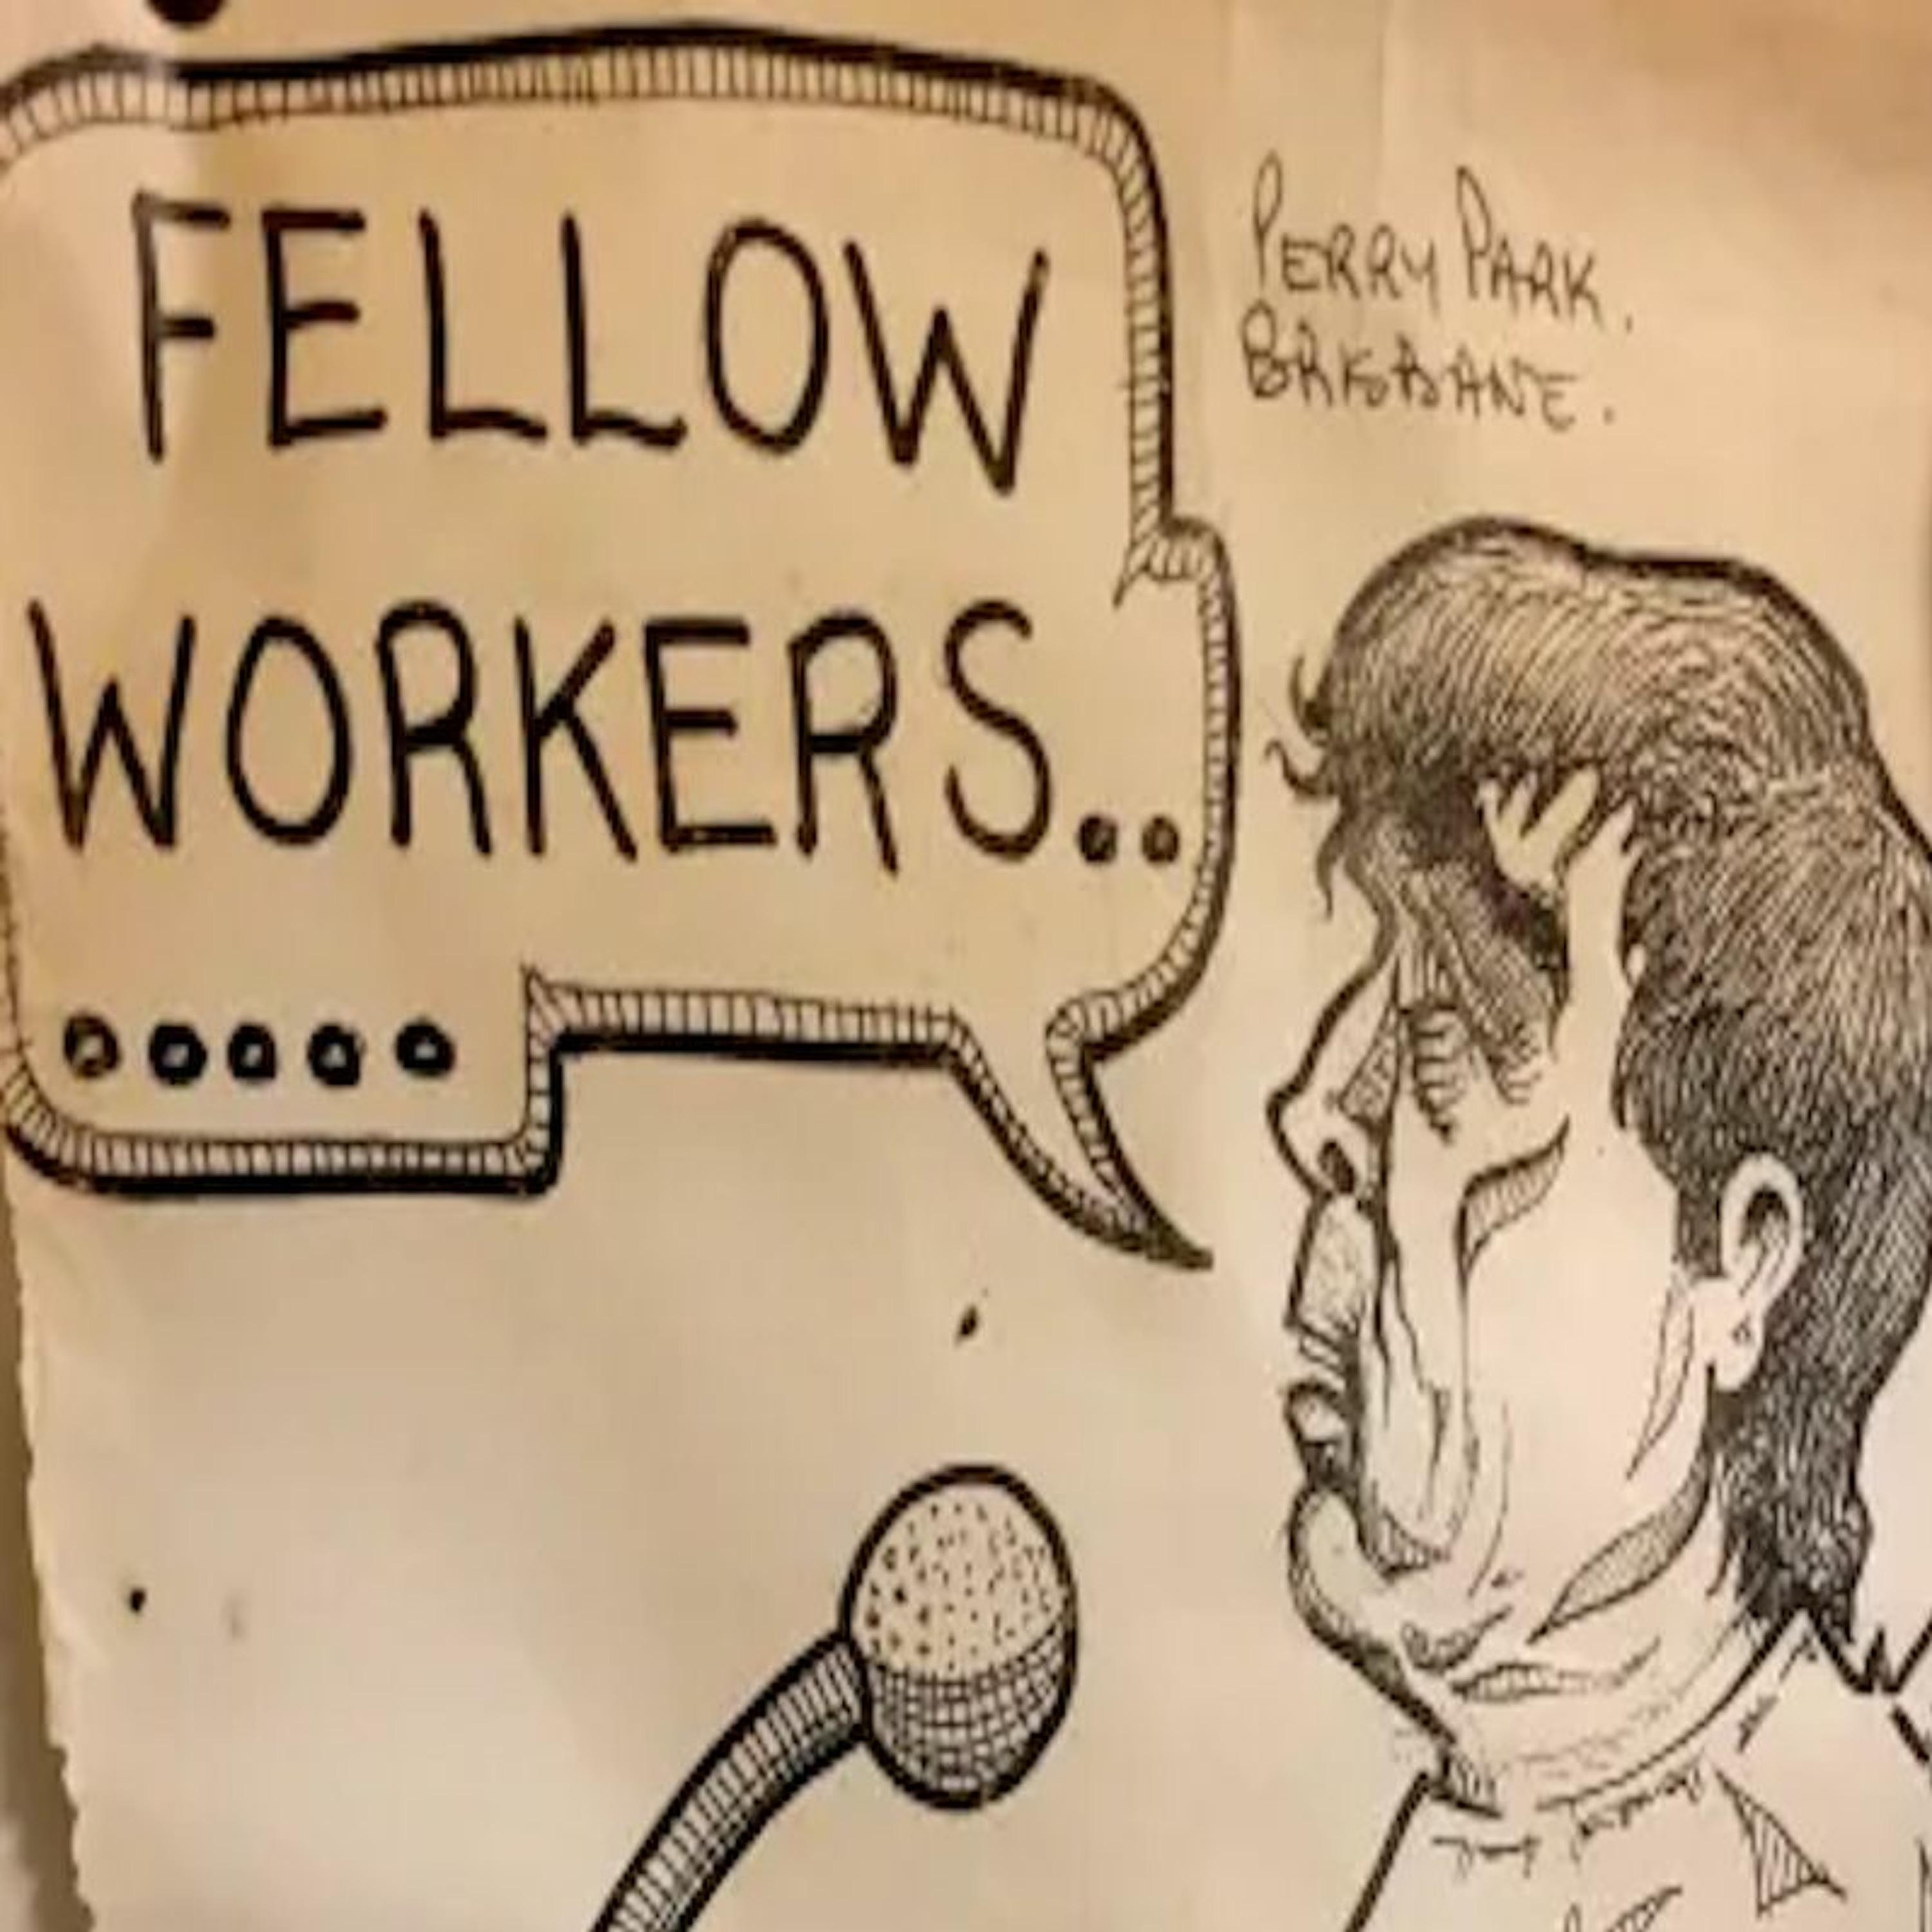 FELLOW
WORKERS..
.....
PERRY PARK.
BRISBANE.